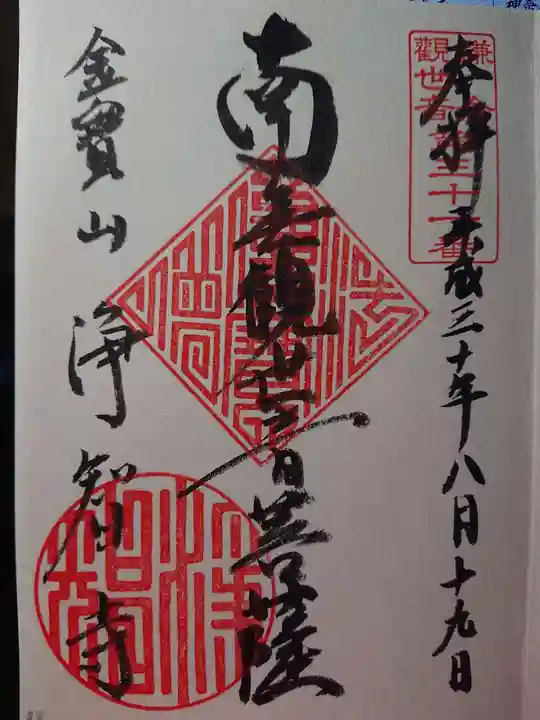 奉拝 平成三十年八月十九日
鎌倉
觀世音第三十一番
南無観世音菩薩
金寶山 浄智寺